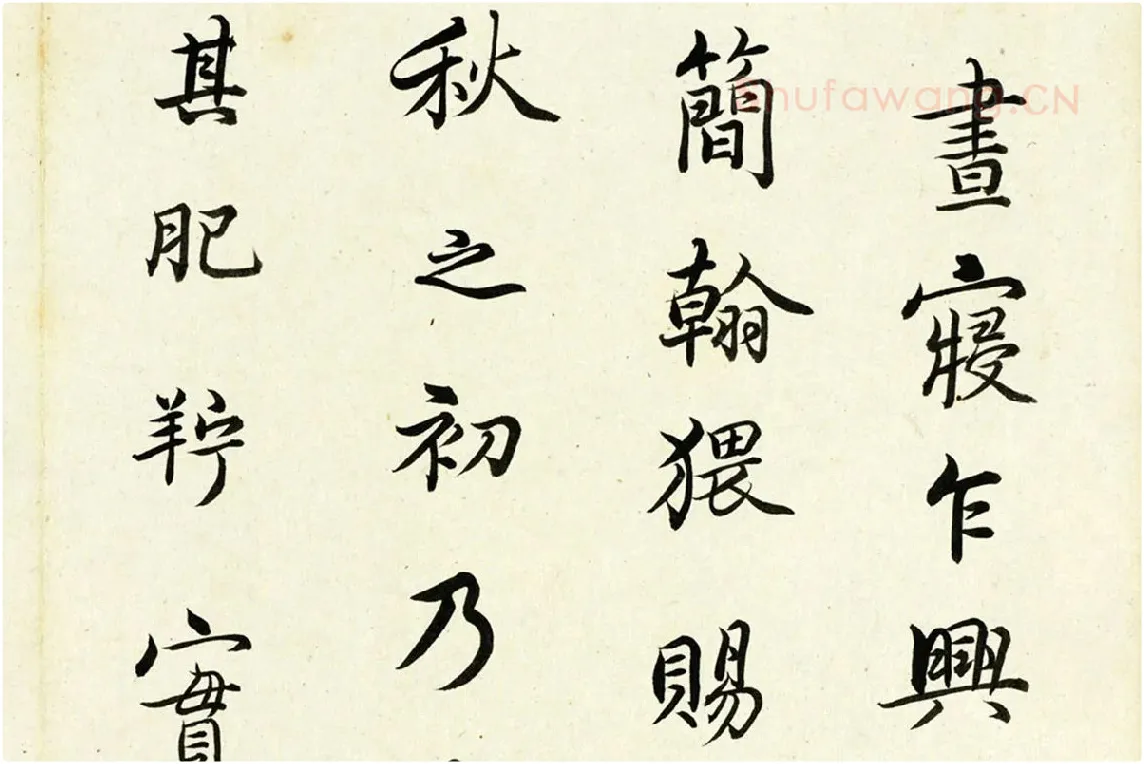 晝寢乍興
簡翰猥賜
秋之初乃
其肥羜實
shufawang.CN